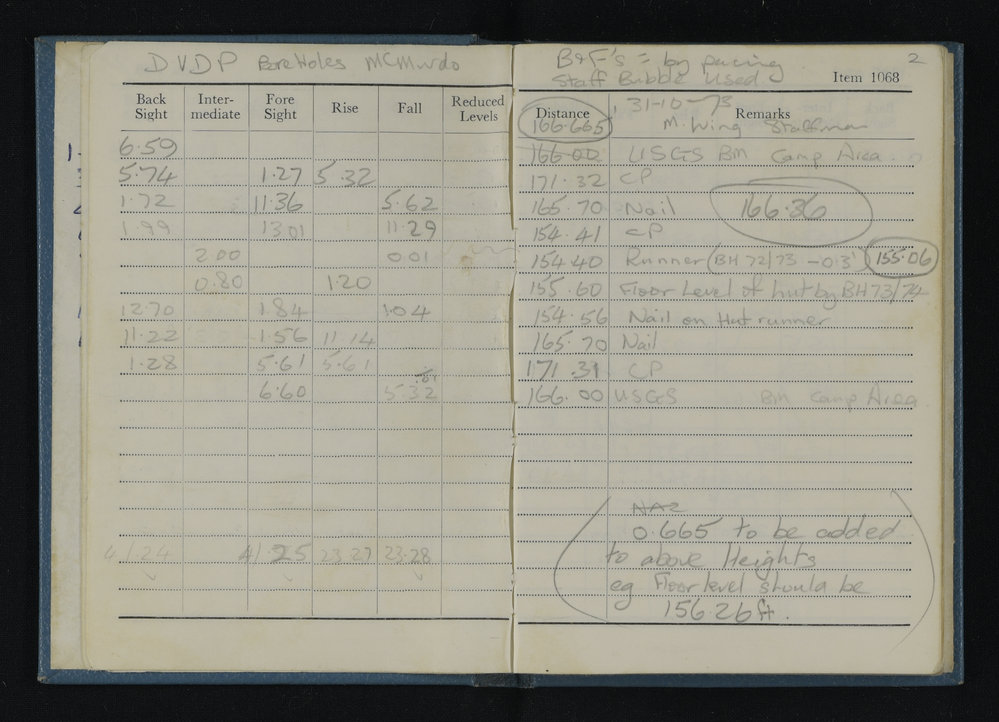 DVDP Bore Holes McMurdo
Back Sight Inter-mediate Fore Sight Rise Fall Reduced Levels
6.59
5.74 1.27 5.32
1.72 11.36 5.62
1.99 13.01 11.29
2.00 0.01
0.80 1.20
12.70 1.84 1.04
11.22 1.56 11.14
1.28 5.61 5.61
.01
6.60 5.32
41.24 41.25 23.27 23.28
2
B&F's = by pacing
Staff Bubble used
Item 1068
31-10-73
Distance Remarks
166.665 M. Wing Staffman
166.00 USGS BM Camp Area
171.32 CP
165.70 Nail 166.36
154.41 CP
154.40 Runner (BH 72/73 -0.3') 155.06
155.60 Floor Level of hut by BH 73/74
154.56 Nail on Hut runner
165.70 Nail
171.31 CP
166.00 USGS BM Camp Area
0.665 to be added
to above Heights
eg Floor level should be
156.26 ft.